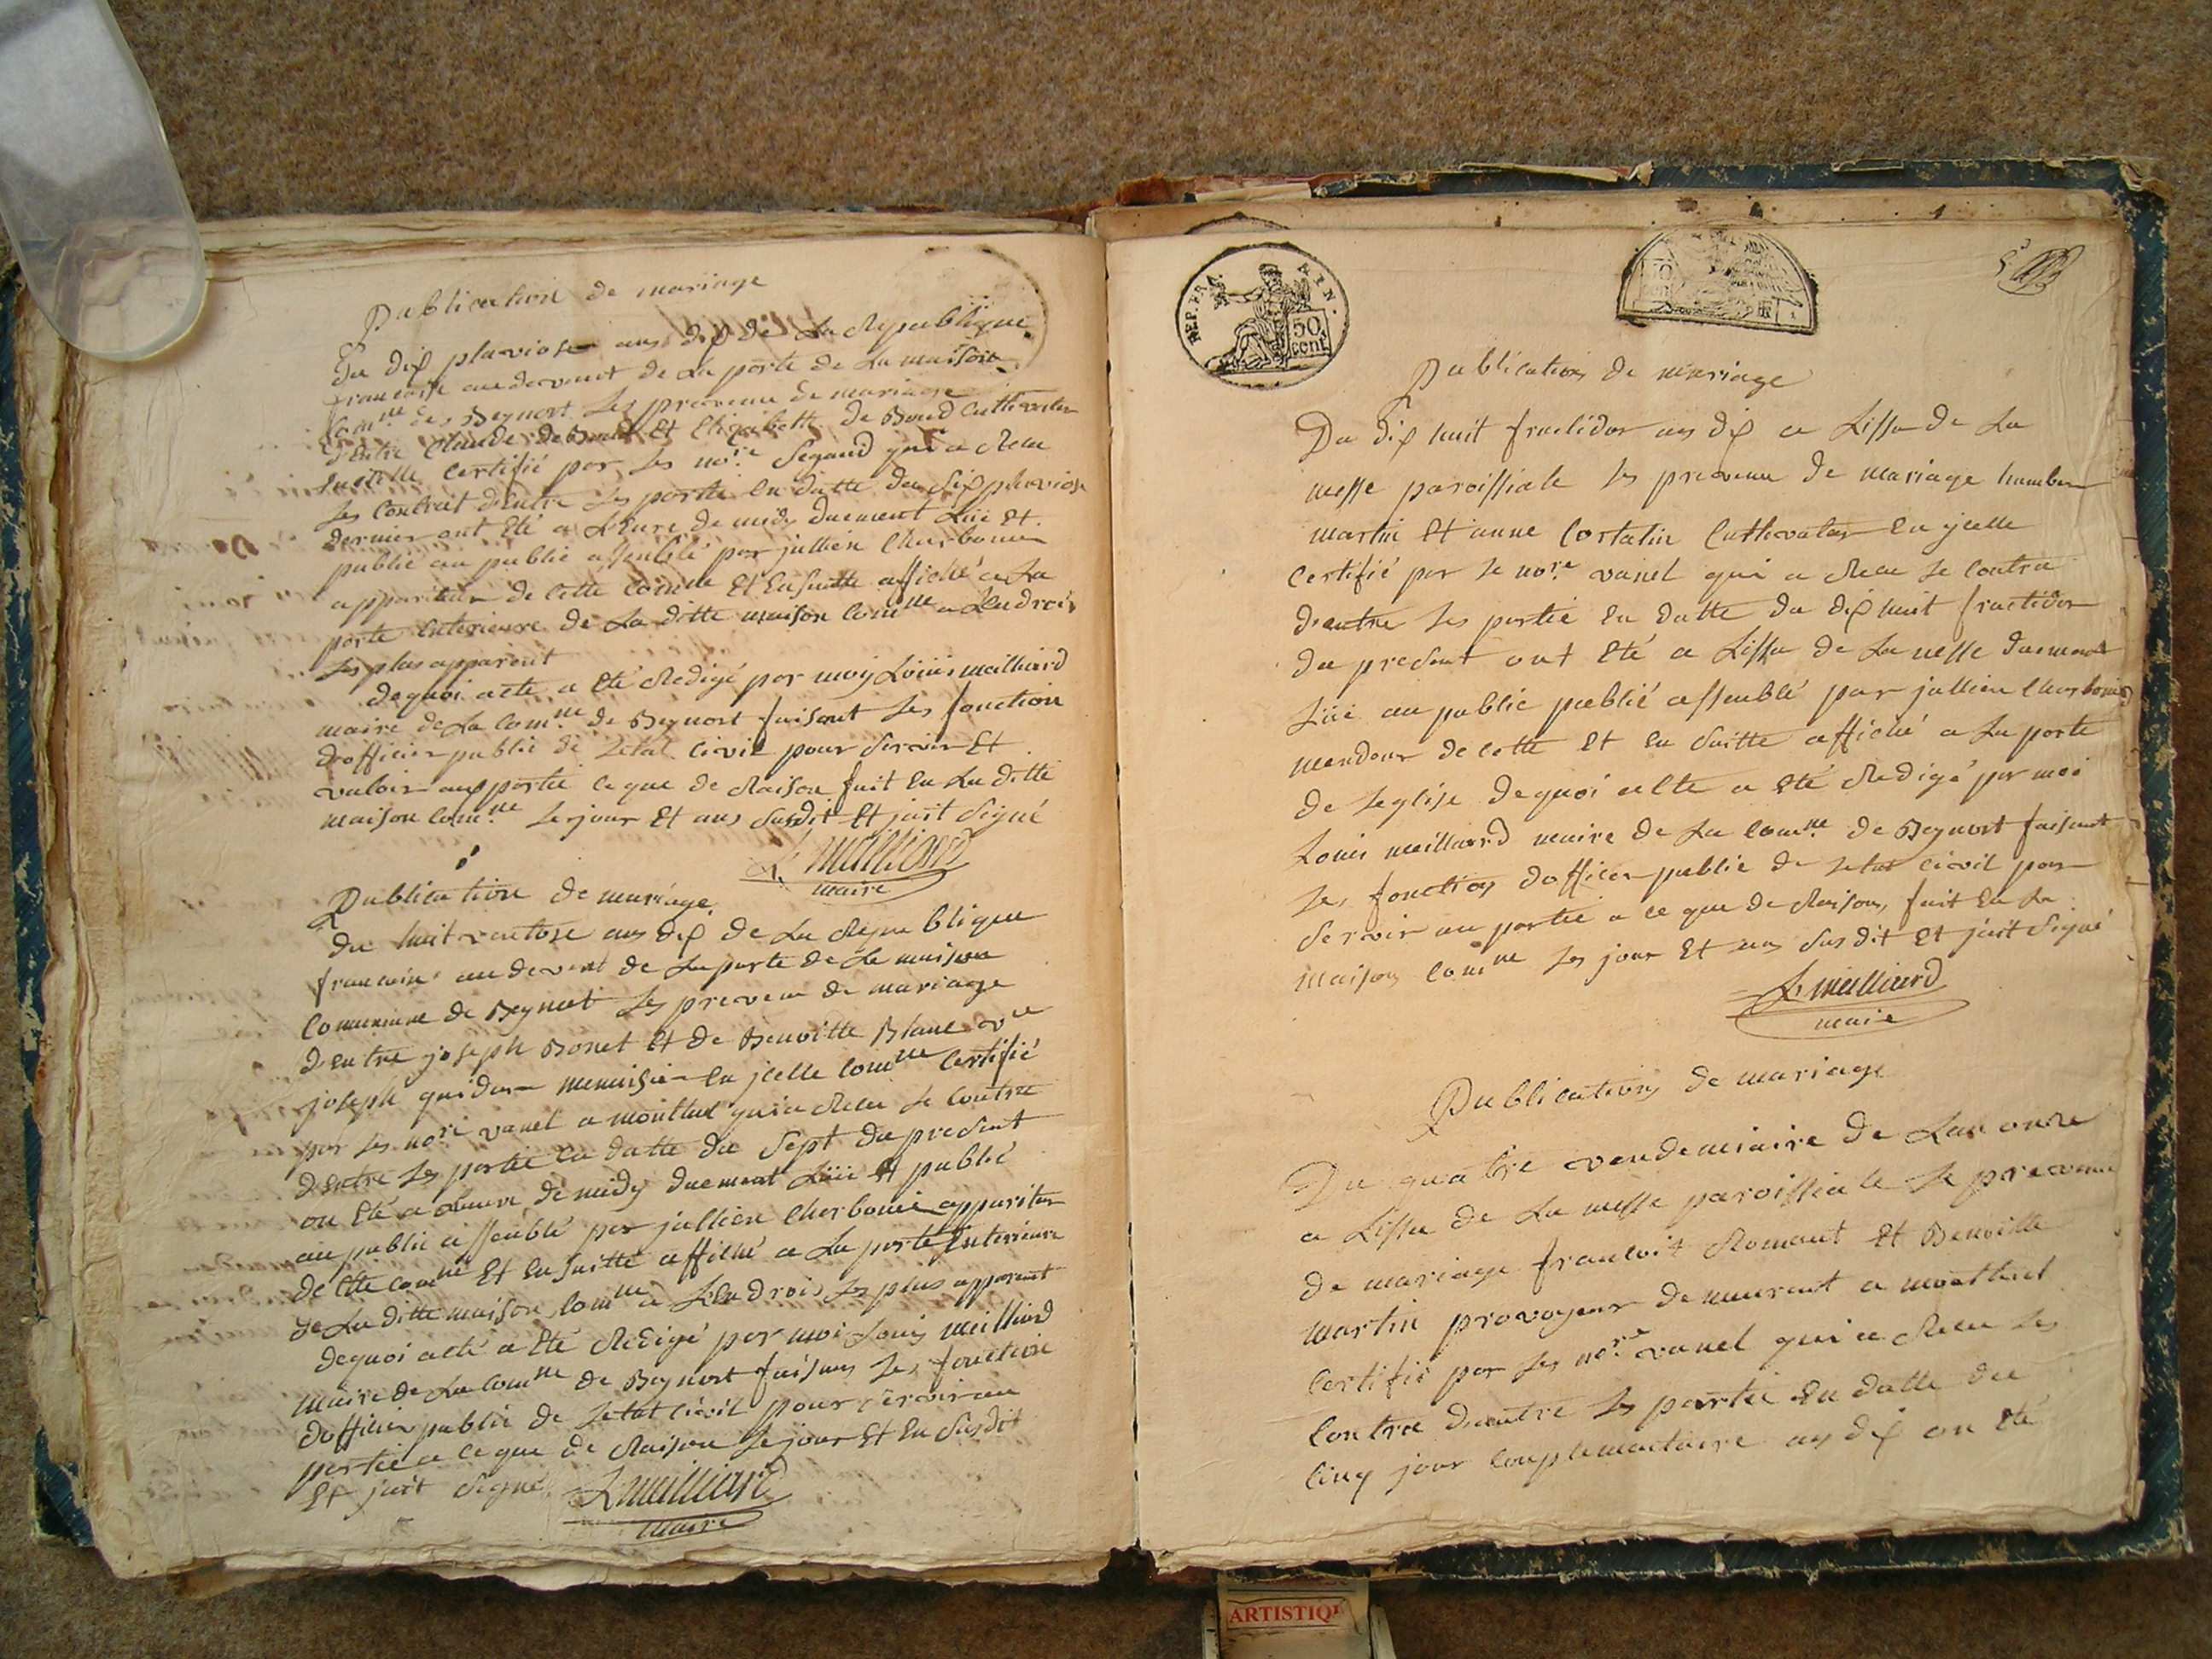 Publication de mariage
Du dix pluviose ans dix de La Republique
francaise au devant de La porte de La maison
Comne de Beynost Les prevenu de mariage
D'Entre Claude debaud Et Elizabeth de Baud Cultivateur
Certifié par Les nore Segaud qui a Recu
Les Contrat d'Entre Les partie En datte du Six pluviose
dernier ont Eté a L'Eure de midy duement Luie Et
publié au public assemblé par jullien Charbonier
appariteur de Cette Comne Et Ensuitte affiché a La
porte Enterieure de La ditte maison Comne a L'Endroix
Les plus apparent
de quoi acte a Eté Redigé par moy Louis meilliard
maire de La Comne de Beynost faisant Les fonction
d'officier public de Letat Civil pour Servir Et
valoir aux partie Ce que de Raison fait En La ditte
maison Comne Le jour Et ans Susdit Et jait Signé
L. meilliard
maire
Publication de mariage
du huit ventose ans dix de La Republique
francaise au devant de La porte de La maison
Commune de Beynost Les prevenu de mariage
d'Entre joseph Bonet Et de Benoitte Blanc vve
joseph quidan menuisier En jcelle Comne Certifié
par Les nore vanel a montluel qui a Recu Le Contra
d'Entre Les partie En datte du Sept du present
on Eté a L'eure de midy duement Luie Et publié
au public assemblé par jullien Charbonié appariteur
de Cette Comne Et En Suitte affiché a La porte Enterieure
de La ditte maison Comne a L'En droix Les plus apparent
de quoi acte a Eté Redigé par moi Louis meilliard
maire de La Comne de Beynost faisans Les fonction
d'officier public de Letat Civil pour Servir au
partie a Ce que de Raison Le jour Et En Susdit
Et jait Signé L meilliard
maire
REP. FRA. TIN.
50 cent
5
Publication de mariage
Du dix huit fructidor ans dix a Lissu de La
messe paroissiale Les prevenu de mariage humber
martin Et anne Cortalin Cultivatar En jcelle
Certifié par Le nore vanel qui a Recu Le Contra
d'entre Les partie En datte du dix huit fructidor
du present ont Eté a Lissu de La messe duement
Luie au public publié assemblé par jullien Charbonié
mandeur de Cette Et En Suitte affiché a La porte
de Leglise de quoi acte a Eté Redigé par moi
Louis meilliard maire de La Comne de Beynost faisant
Les fonction d'officier public de Letat Civil pour
Servir au partie a Ce que de Raison, fait En La
maison Comne Les jour Et ans Susdit Et jait Signé
L. meilliard
maire
Publication de mariage
Du quatre vendemiaire de Lan onze
a Lissu de La messe paroissiale Le prevenu
de mariage francois Romant Et Benoitte
martin provoyeur demeurant a montluel
Certifié par Les nore vanel qui a Recu Les
Contra d'entre Les partie En datte du
Cinq jour Complementaire ans dix on Eté
ARTISTIQ